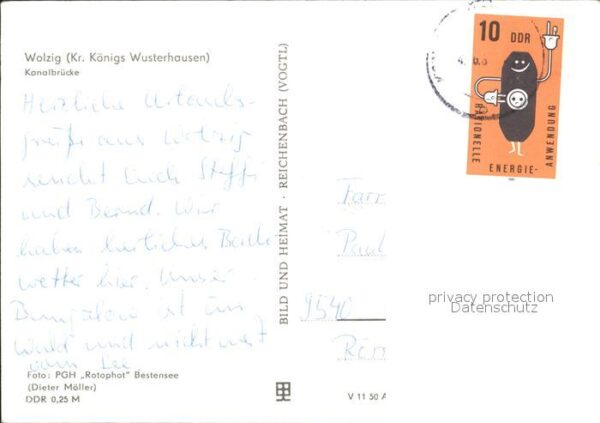 Wolzig (Kr. Königs Wusterhausen)
Kanalbrücke
Herzliche Urlaubs-
grüße aus Wolzig
sendet Euch Steffi
und Bernd. Wir
haben herrliches Bade-
wetter hier. Unser
Bungalow ist im
Wald und nicht weit
vom See
Foto: PGH „Rotophot" Bestensee
(Dieter Möller)
DDR 0,25 M
BILD UND HEIMAT · REICHENBACH (VOGTL)
V 11 50 A
10 DDR
RATIONELLE
ENERGIE-
ANWENDUNG
Fam
Paul
9540
privacy protection
Datenschutz